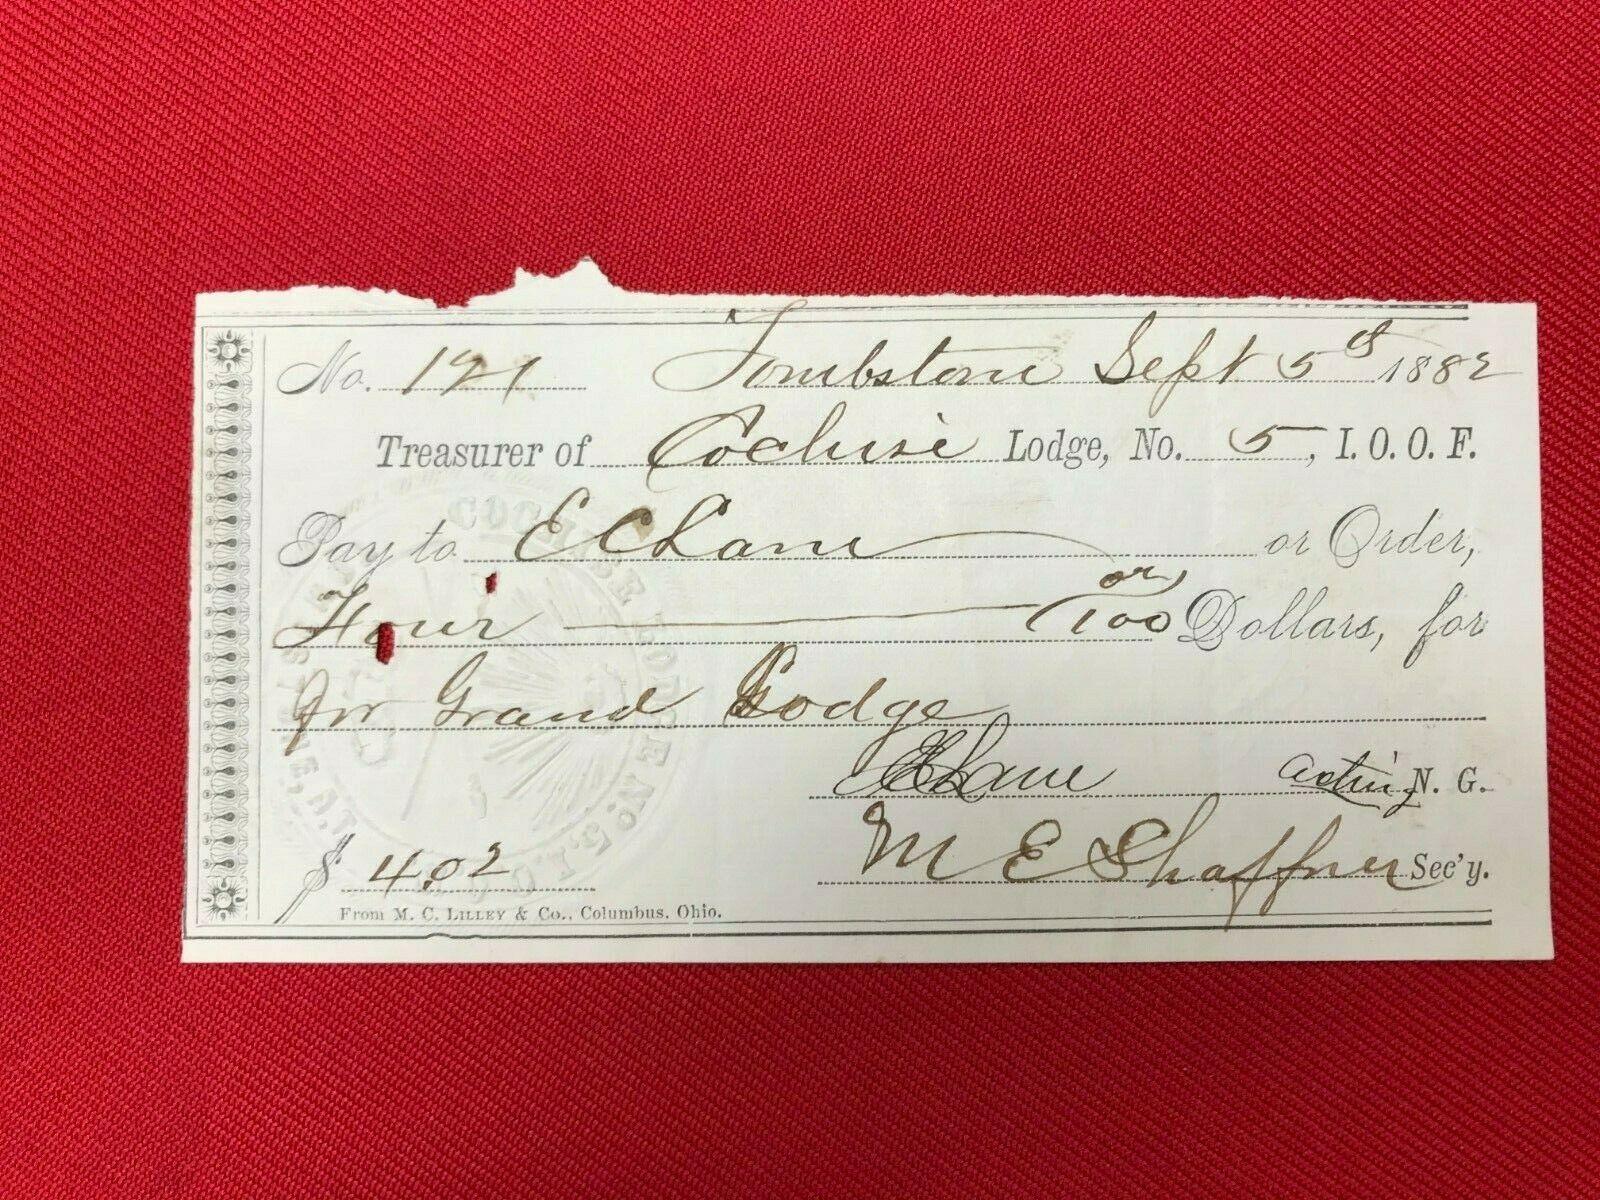 No. 121 Tombstone Sept 5th 1882
Treasurer of Cochise Lodge, No. 5, I. O. O. F.
Pay to E C Lane or Order,
Four 02/100 Dollars, for
for Grand Lodge
Lane acting N. G.
M E Shaffner Sec'y.
$ 4.02
From M. C. Lilley & Co., Columbus, Ohio.
COCHISE LODGE No. 5. I.O.